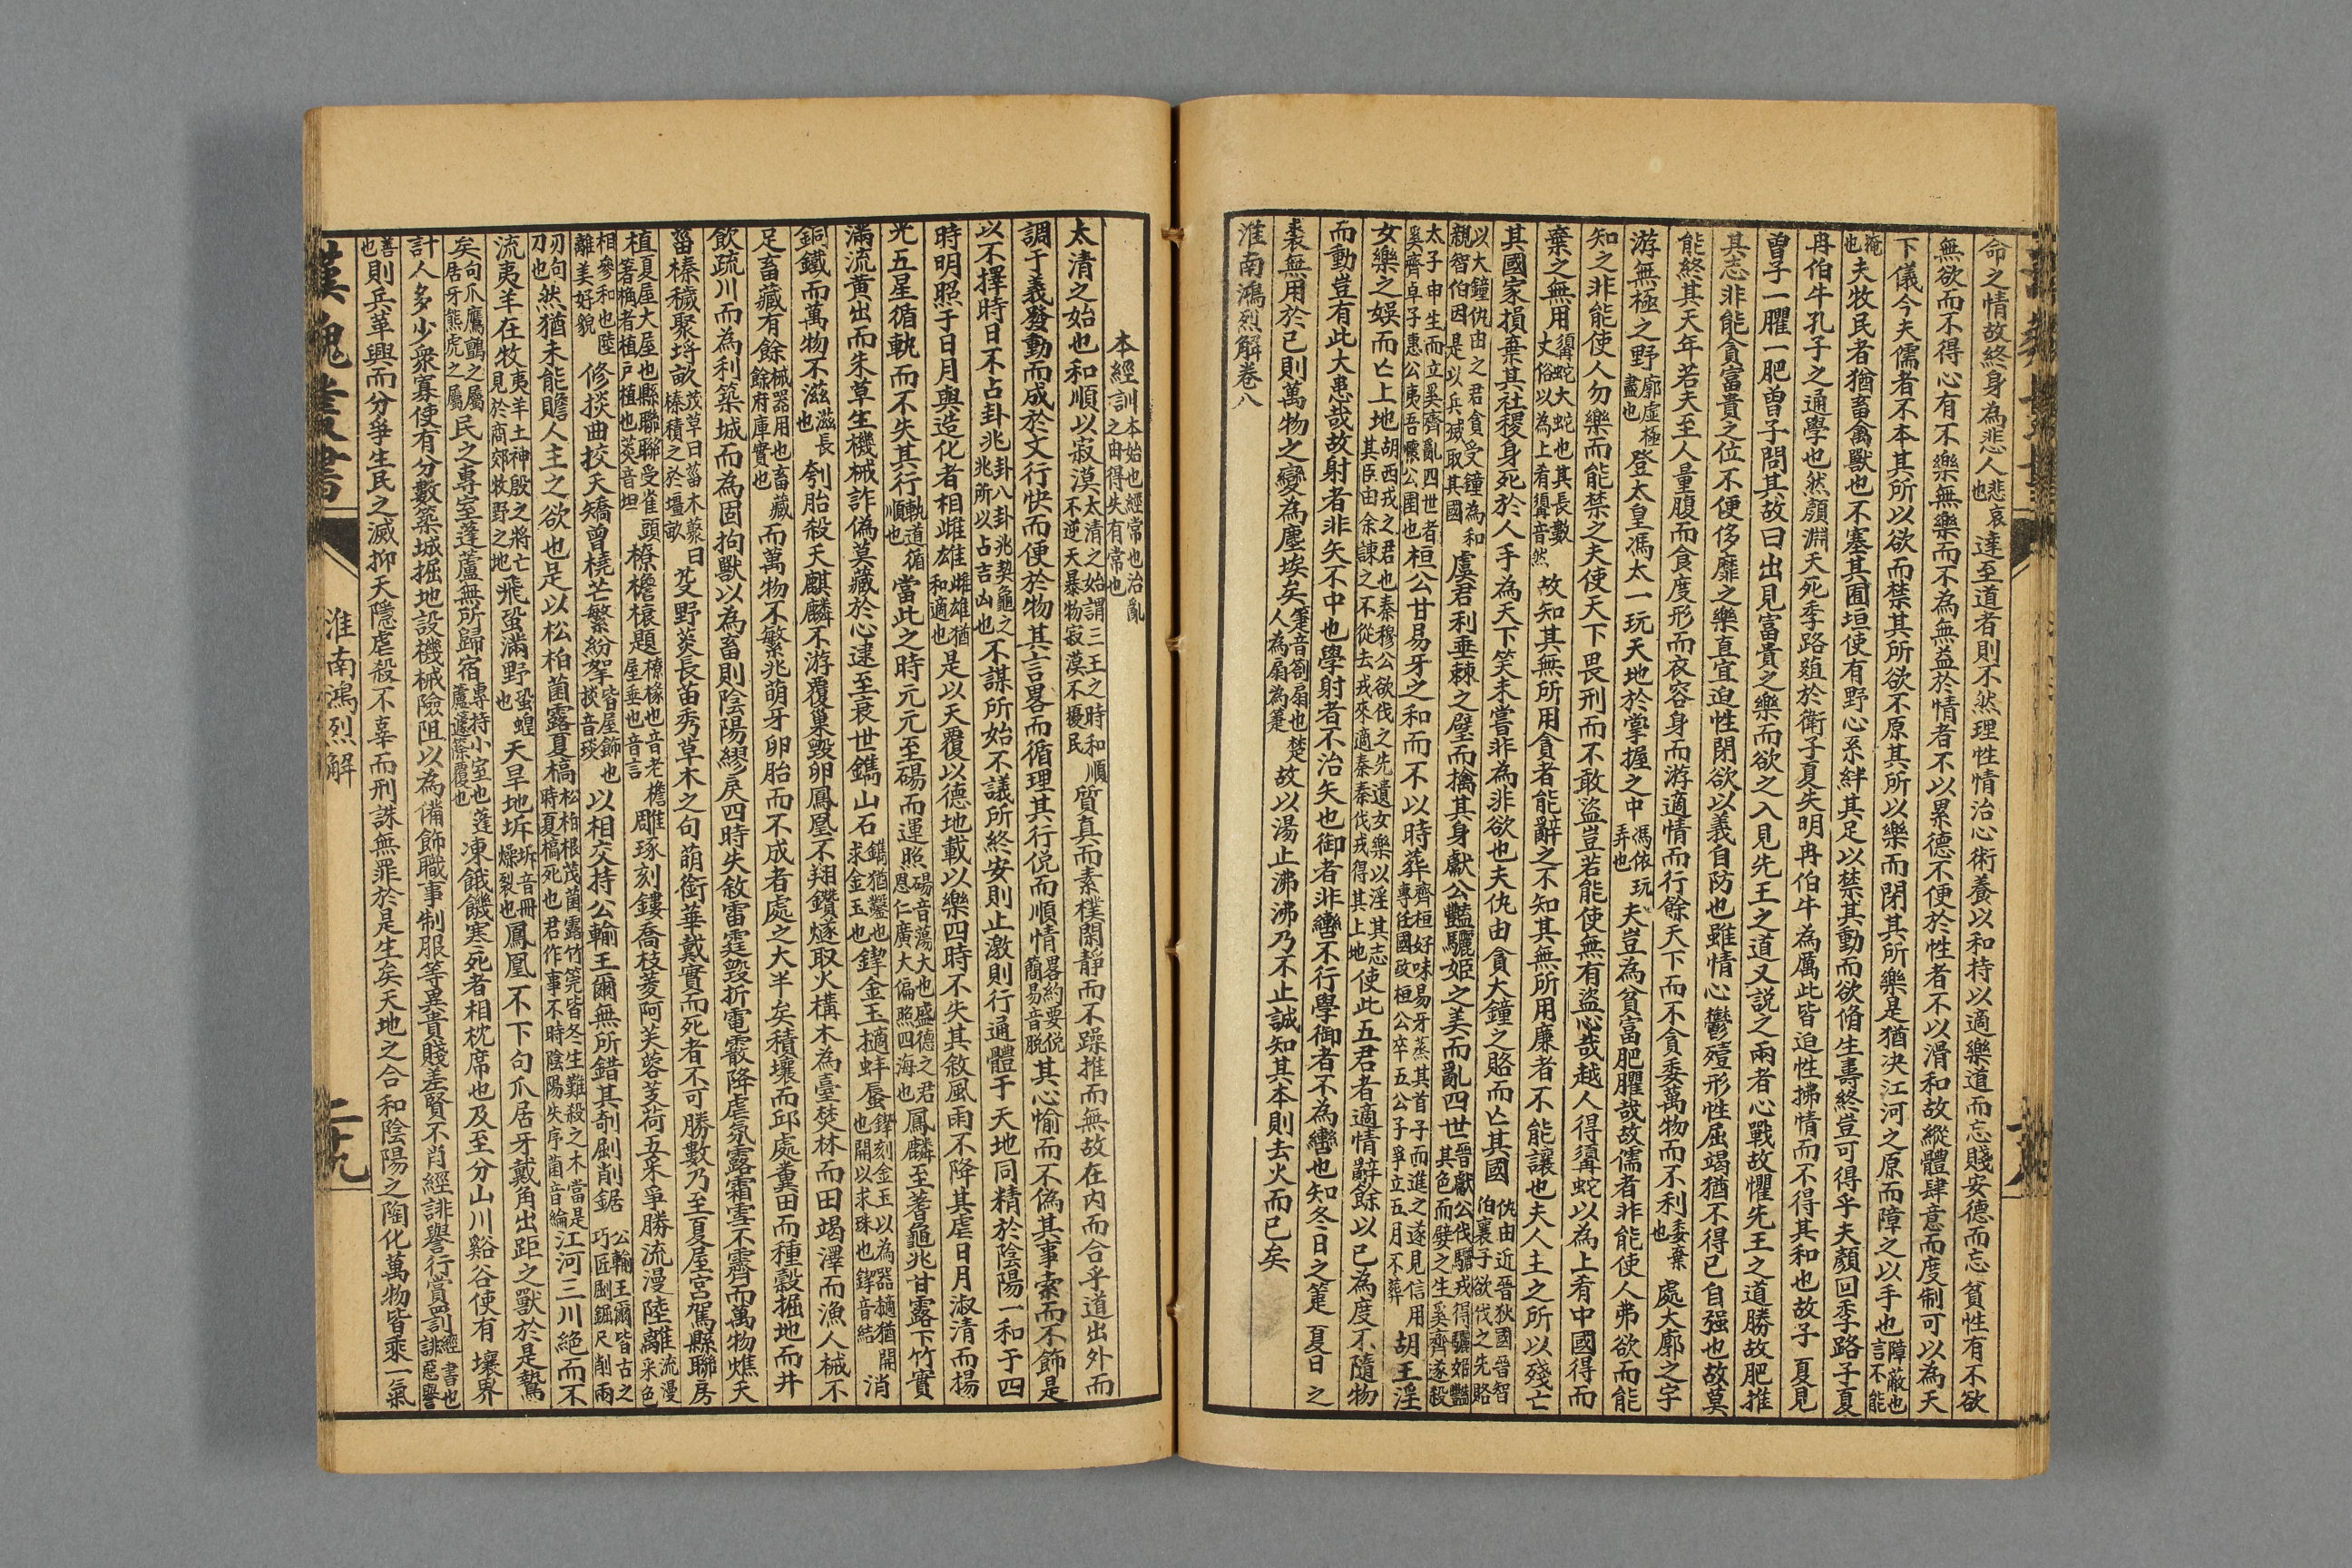 命之情故終身為悲人悲哀也達至道者則不然理性情治心術養以和持以適樂道而忘賤安德而忘貧性有不欲
無欲而不得心有不樂無樂而不為無益於情者不以累德不便於性者不以滑和故縱體肆意而度制可以為天
下儀今夫儒者不本其所以欲而禁其所欲不原其所以樂而閉其所樂是猶決江河之原而障之以手也障蔽也言不能
掩也夫牧民者猶畜禽獸也不塞其囿垣使有野心系絆其足以禁其動而欲脩生壽終豈可得乎夫顏回季路子夏
冉伯牛孔子之通學也然顏淵夭死季路葅於衛子夏失明冉伯牛為厲此皆迫性拂情而不得其和也故子夏見
曾子一臞一肥曾子問其故曰出見富貴之樂而欲之入見先王之道又説之兩者心戰故懼先王之道勝故肥推
其志非能貪富貴之位不便侈靡之樂直宜迫性閉欲以義自防也雖情心鬱殪形性屈竭猶不得已自强也故莫
能終其天年若夫至人量腹而食度形而衣容身而游適情而行餘天下而不貪委萬物而不利委棄也處大廓之宇
游無極之野廓虛極盡也登太皇馮太一玩天地於掌握之中馮依玩弄也夫豈為貧富肥臞哉故儒者非能使人弗欲而能
知之非能使人勿樂而能禁之夫使天下畏刑而不敢盜豈若能使無有盜心哉越人得髯蛇以為上肴中國得而
棄之無用髯蛇大蛇也其長數丈俗以為上肴髯音然故知其無所用貪者能辭之不知其無所用廉者不能讓也夫人主之所以殘亡
其國家損棄其社稷身死於人手為天下笑未嘗非為非欲也夫仇由貪大鐘之賂而亡其國仇由近晉狄國晉智伯襄子欲伐之先賂
以大鐘仇由之君貪受鐘為和親智伯因是以兵滅取其國虞君利垂棘之璧而擒其身獻公豔驪姬之美而亂四世晉獻公伐驪戎得驪姬豔其色而嬖之生奚齊遂殺
太子申生而立奚齊亂四世者奚齊卓子惠公夷吾懷公圉也桓公甘易牙之和而不以時葬齊桓好味易牙蒸其首子而進之遂見信用專任國政桓公卒五公子爭立五月不葬胡王淫
女樂之娛而亡上地胡西戎之君也秦穆公欲伐之先遺女樂以淫其志其臣由余諫之不從去戎來適秦秦伐戎得其上地使此五君者適情辭餘以己為度不隨物
而動豈有此大患哉故射者非矢不中也學射者不治矢也御者非轡不行學御者不為轡也知冬日之箑夏日之
裘無用於己則萬物之變為塵埃矣箑音劄扇也楚人為扇為箑故以湯止沸沸乃不止誠知其本則去火而已矣
淮南鴻烈解卷八
本經訓本始也經常也治亂之由得失有常也
太清之始也和順以寂漠太清之始謂三王之時和順不逆天暴物寂漠不擾民質真而素樸閑靜而不躁推而無故在内而合乎道出外而
調于義發動而成於文行快而便於物其言畧而循理其行侻而順情畧約要侻簡易音脱其心愉而不偽其事素而不飾是
以不擇時日不占卦兆卦八卦兆契龜之兆所以占吉凶也不謀所始不議所終安則止激則行通體于天地同精於陰陽一和于四
時明照于日月與造化者相雌雄雌雄猶和適也是以天覆以德地載以樂四時不失其敘風雨不降其虐日月淑清而揚
光五星循軌而不失其行軌道循順也當此之時元元至碭而運照碭音蕩大也盛德之君恩仁廣大偏照四海也鳳麟至蓍龜兆甘露下竹實
滿流黃出而朱草生機械詐偽莫藏於心逮至衰世鐫山石鐫猶鑿也求金玉也鍥金玉擿蚌蜃鍥刻金玉以為器擿猶開也開以求珠也鍥音結消
銅鐵而萬物不滋滋長也刳胎殺夭麒麟不游覆巢毀卵鳳凰不翔鑽燧取火構木為臺焚林而田竭澤而漁人械不
足畜藏有餘械器用也畜藏餘府庫實也而萬物不繁兆萌牙卵胎而不成者處之大半矣積壤而邱處糞田而種穀掘地而井
飲疏川而為利築城而為固拘獸以為畜則陰陽繆戾四時失敘雷霆毀折電霰降虐氛露霜雪不霽而萬物燋夭
菑榛穢聚埒畝茂草曰菑木藂曰榛積之於壇畝芟野莢長苗秀草木之句萌銜華戴實而死者不可勝數乃至夏屋宮駕縣聯房
植夏屋大屋也縣聯聯受雀頭著桷者植戶植也莢音坦橑檐榱題橑椽也音老檐屋垂也音言雕琢刻鏤喬枝菱阿芙蓉芰荷五采爭勝流漫陸離流漫采色
相參和也陸離美好貌修掞曲挍夭矯曾橈芒繁紛挐皆屋飾也掞音琰以相交持公輸王爾無所錯其剞劂削鋸公輸王爾皆古之巧匠劂鋸尺削兩
刃句刀也然猶未能贍人主之欲也是以松柏菌露夏槁松柏根茂菌露竹筦皆冬生難殺之木當是時夏槁死也君作事不時陰陽失序菌音綸江河三川絶而不
流夷羊在牧夷羊土神殷之將亡見於商郊牧野之地飛蛩滿野蛩蝗也天旱地坼坼音冊燥裂也鳳凰不下句爪居牙戴角出距之獸於是鷙
矣句爪鷹鸇之屬居牙熊虎之屬民之專室蓬廬無所歸宿專特小室也蓬廬籧篨覆也凍餓饑寒死者相枕席也及至分山川谿谷使有壤界
計人多少衆寡使有分數築城掘地設機械險阻以為備飾職事制服等異貴賤差賢不肖經誹譽行賞罰經書也誹惡譽
善也則兵革興而分爭生民之滅抑夭隱虐殺不辜而刑誅無罪於是生矣天地之合和陰陽之陶化萬物皆乘一氣
漢魏叢書
淮南鴻烈解
二十九